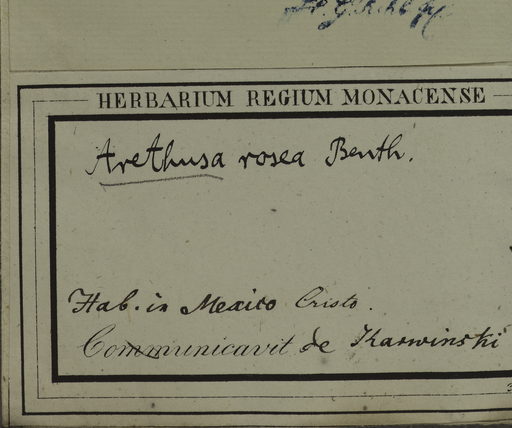 HERBARIUM REGIUM MONACENSE
Arethusa rosea Benth.
Hab. in Mexico Cristo.
Communicavit de Karwinski